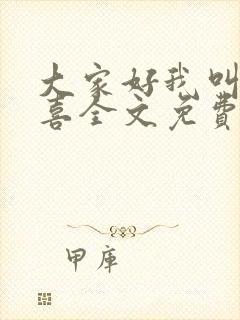 大家好我叫
喜全文免费
甲库